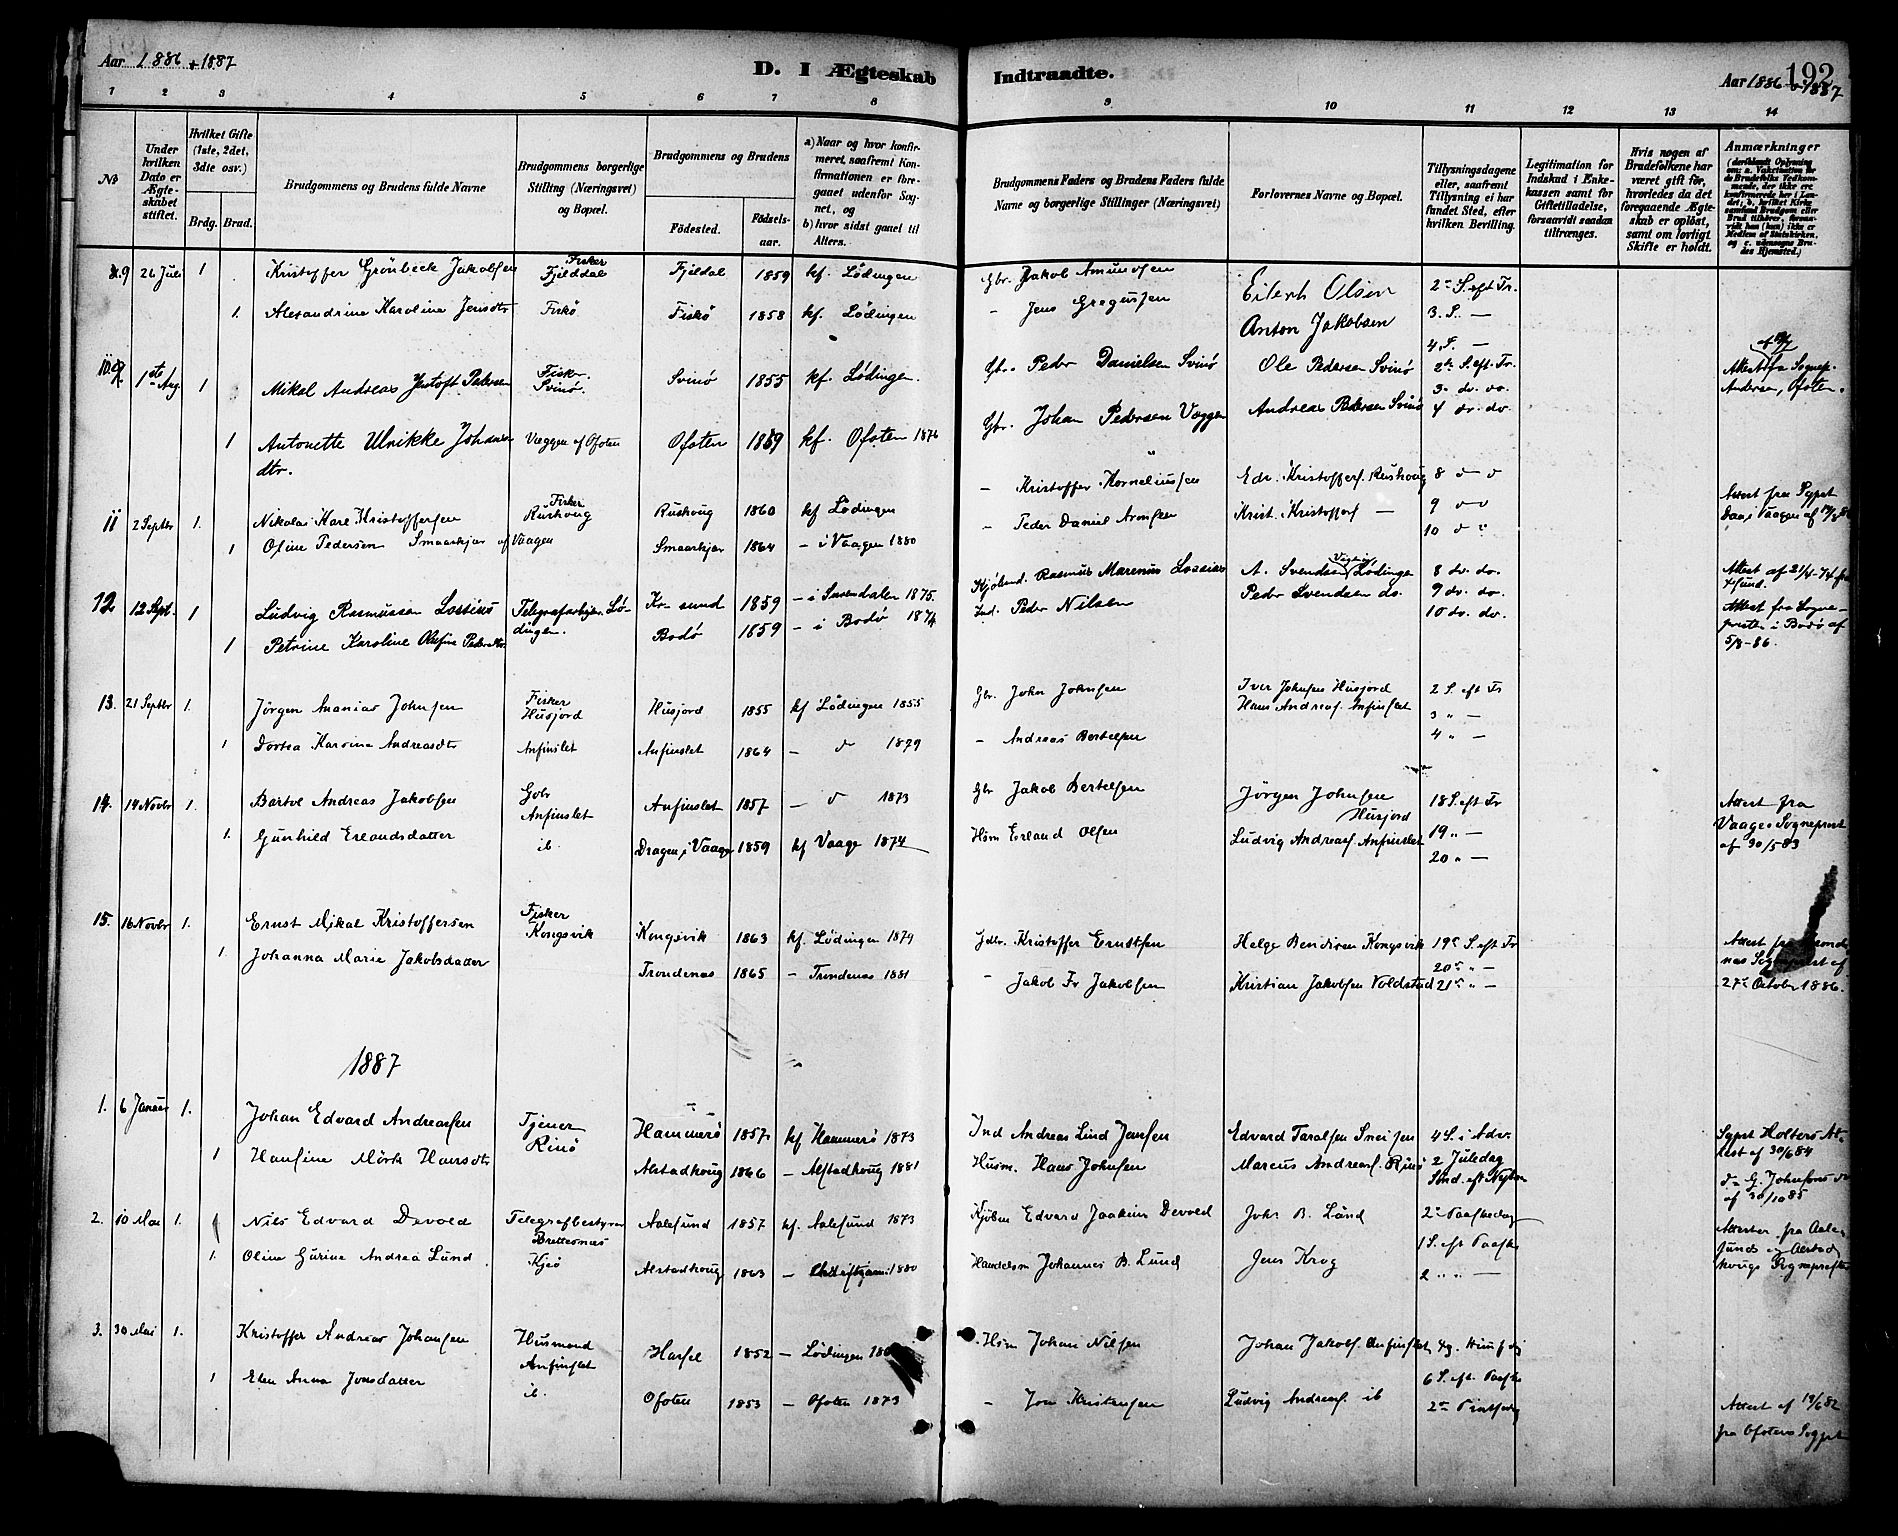 Aar 1886 + 1887
D. I Ægteskab Indtraadte.
Aar 1886 + 1887
192
1 2 3 4 5 6 7 8 9 10 11 12 13 14
No
Under hvilken Dato er Ægteskabet stiftet.
Hvilket Gifte (1ste, 2det, 3die osv.)
Brdg. Brud.
Brudgommens og Brudens fulde Navne
Brudgommens borgerlige Stilling (Næringsvei) og Bopæl.
Brudgommens og Brudens
Fødested.
Fødselsaar.
a) Naar og hvor konfirmeret, saafremt Konfirmationen er foregaaet udenfor Sognet, og
b) hvor sidst gaaet til Alters.
Brudgommens Faders og Brudens Faders fulde Navne og borgerlige Stillinger (Næringsvei)
Forlovernes Navne og Bopæl.
Tillysningsdagene eller, saafremt Tillysning ei har fundet Sted, efter hvilken Bevilling.
Legitimation for Indskud i Enkekassen samt for Giftetilladelse, forsaavidt saadan tiltrænges.
Hvis nogen af Brudefolkene har været gift før, hvorledes da det foregaaende Ægteskab er opløst, samt om lovligt Skifte er holdt.
Anmærkninger
9 26 Juli 1 Kristoffer Grönbeck Jakobsen Fisker Fjelddal Fjeldal 1859 kf. Lödingen Gbr. Jakob Amundsen Eilert Olsen 2den S. eft Tr.
1. Alexandrine Karoline Jensdtr Fiskö Fiskö 1858 kf. Lödingen – Jens Gregussen Anton Jakobsen 3. S. –
4. S. –
10. 1ste Aug. 1 Mikal Andreas Justoft Pedersen Fisker Svinö. Svinö 1855 kf. Lödingen. Gbr. Peder Danielsen Svinö Ole Pedersen Svinö 2den S. eft. Tr. Attest fra Sognep.
3. do. do. Andersen, Ofoten.
1 Antonette Ulrikke Johansen Væggen af Ofoten Ofoten 1859 kf. Ofoten 1876 Gbr. Johan Pedersen Væggen Andreas Pedersen Svinö 4 do. do.
dtr.
11 2 Septbr 1. Nikolai Karl Kristoffersen Fisker Rushoug Rushoug 1860 kf Lödingen – Kristoffer Korneliussen Edv. Kristoffers. Rushoug 8 Attest fra Sgprst
1 Ofine Pedersen Smaarkjær af Vaagen Smaarkjær 1864 – i Vaagen 1880 – Peder Daniel Aronsen Krist. Kristoffers – 9
10
12 12 Sept. 1 Ludvig Rasmussen Lossius Telegrafarbeider Lödingen. Kr. sund 1859 – i Surendalen 1875. Kjøbmd. Rasmus Marenus Lossius A. Svendsen Lödinge 8 do. do. Attest af 21/4-74 fra
1 Petrine Karoline Olufine Pedersdtr. Bodö 1859 – i Bodö 1874 Ind. Peder Nilsen Peder Svendsen do. 9 do. do. Attest fra Sogneprsten i Bodö af
10 do. do. 5/8-86.
13. 21 Septbr 1. Jörgen Ananias Johnsen Fisker Husjord Husjord 1855 kf Lödingen 1855 Gbr. John Johnsen Iver Johnsen Husjord 2 S. eft Tr
1 Dortea Karoine Andreasdtr Anfinslet Anfinslet 1864 – 1879 – Andreas Bertelsen Hans Andreas. Anfinslet 3 " –
4 " –
14. 14 Novbr 1. Bartol Andreas Jakobsen Gbr Anfinslet Anfinslet 1857 – 1873 Gbr Jakob Bertelsen Jörgen Johnsen Husjord 18 S. eft Tr Attest fra
1. Gunhild Erlandsdatter ib. Dragen, i Vaage 1859 kf Vaage 1874 Hsm Erland Olsen Ludvig Andreas. Anfinslet 19 " – Vaages Sogneprst
20 " – af 30/5 83
15. 16 Novbr 1. Ernst Mikal Kristoffersen Fisker Kongsvik Kongsvik 1863 kf. Lödingen 1879 Kristoffer Ernstsen Helge Bendixen Kongsvik 19de S. eft Tr Attest fra
1. Johanna Marie Jakobsdatter Trondenas 1865 – Trondenas 1881 – Jakob Fr Jakobsen Kristian Jakobsen Voldstad 20de " –
21de " – 27de Oktober 1886.
1887
1. 6 Januar 1. Johan Edvard Andreassen Tjener Rinö Hammerö 1857 kf Hammerö 1873 Ind Andreas Lind Jensen Edvard 4 S. i Adv. Sgprst Holters Attest af 30/6 84
1 Hansine Mörk Hansdtr Alstadhoug 1866 – Alstadhoug 1881 Husm. Hans Johnsen Marcus Andreas. Rinö 2 Juledag
Sönd. eft Nytaar af 30/10 85
2. 10 Mai 1. Nils Edvard Devold Telegrafbestyrer Brettesnæs Aalesund 1857 kf. Aalesund 1873 Kjöbm Edvard Joakim Devold Johs B. Lund 2den Paaskedag Attester fra Aalesund og Alstadhougs
1. Oline Gurine Andrea Lund Kjeö Alstadhoug 1863 – 1880 Handelsm Johannes B. Lund Jens Krog 1 S. eft Paaske
2 " " –
3. 30 Mai 1. Kristoffer Andreas Johansen Husmand Anfinslet Hassel 1852 – Lödingen Hsm Johan Nilsen Johan Jakobs. Anfinslet
1 Elen Anna Jonsdatter ib. Ofoten 1853 – Ofoten 1873 – Jon Kristensen Ludvig Andreas. ib 6 S. eft. Paaske
2den Pintsedag Attest af 19/6 82
fra Ofotens Sgprst